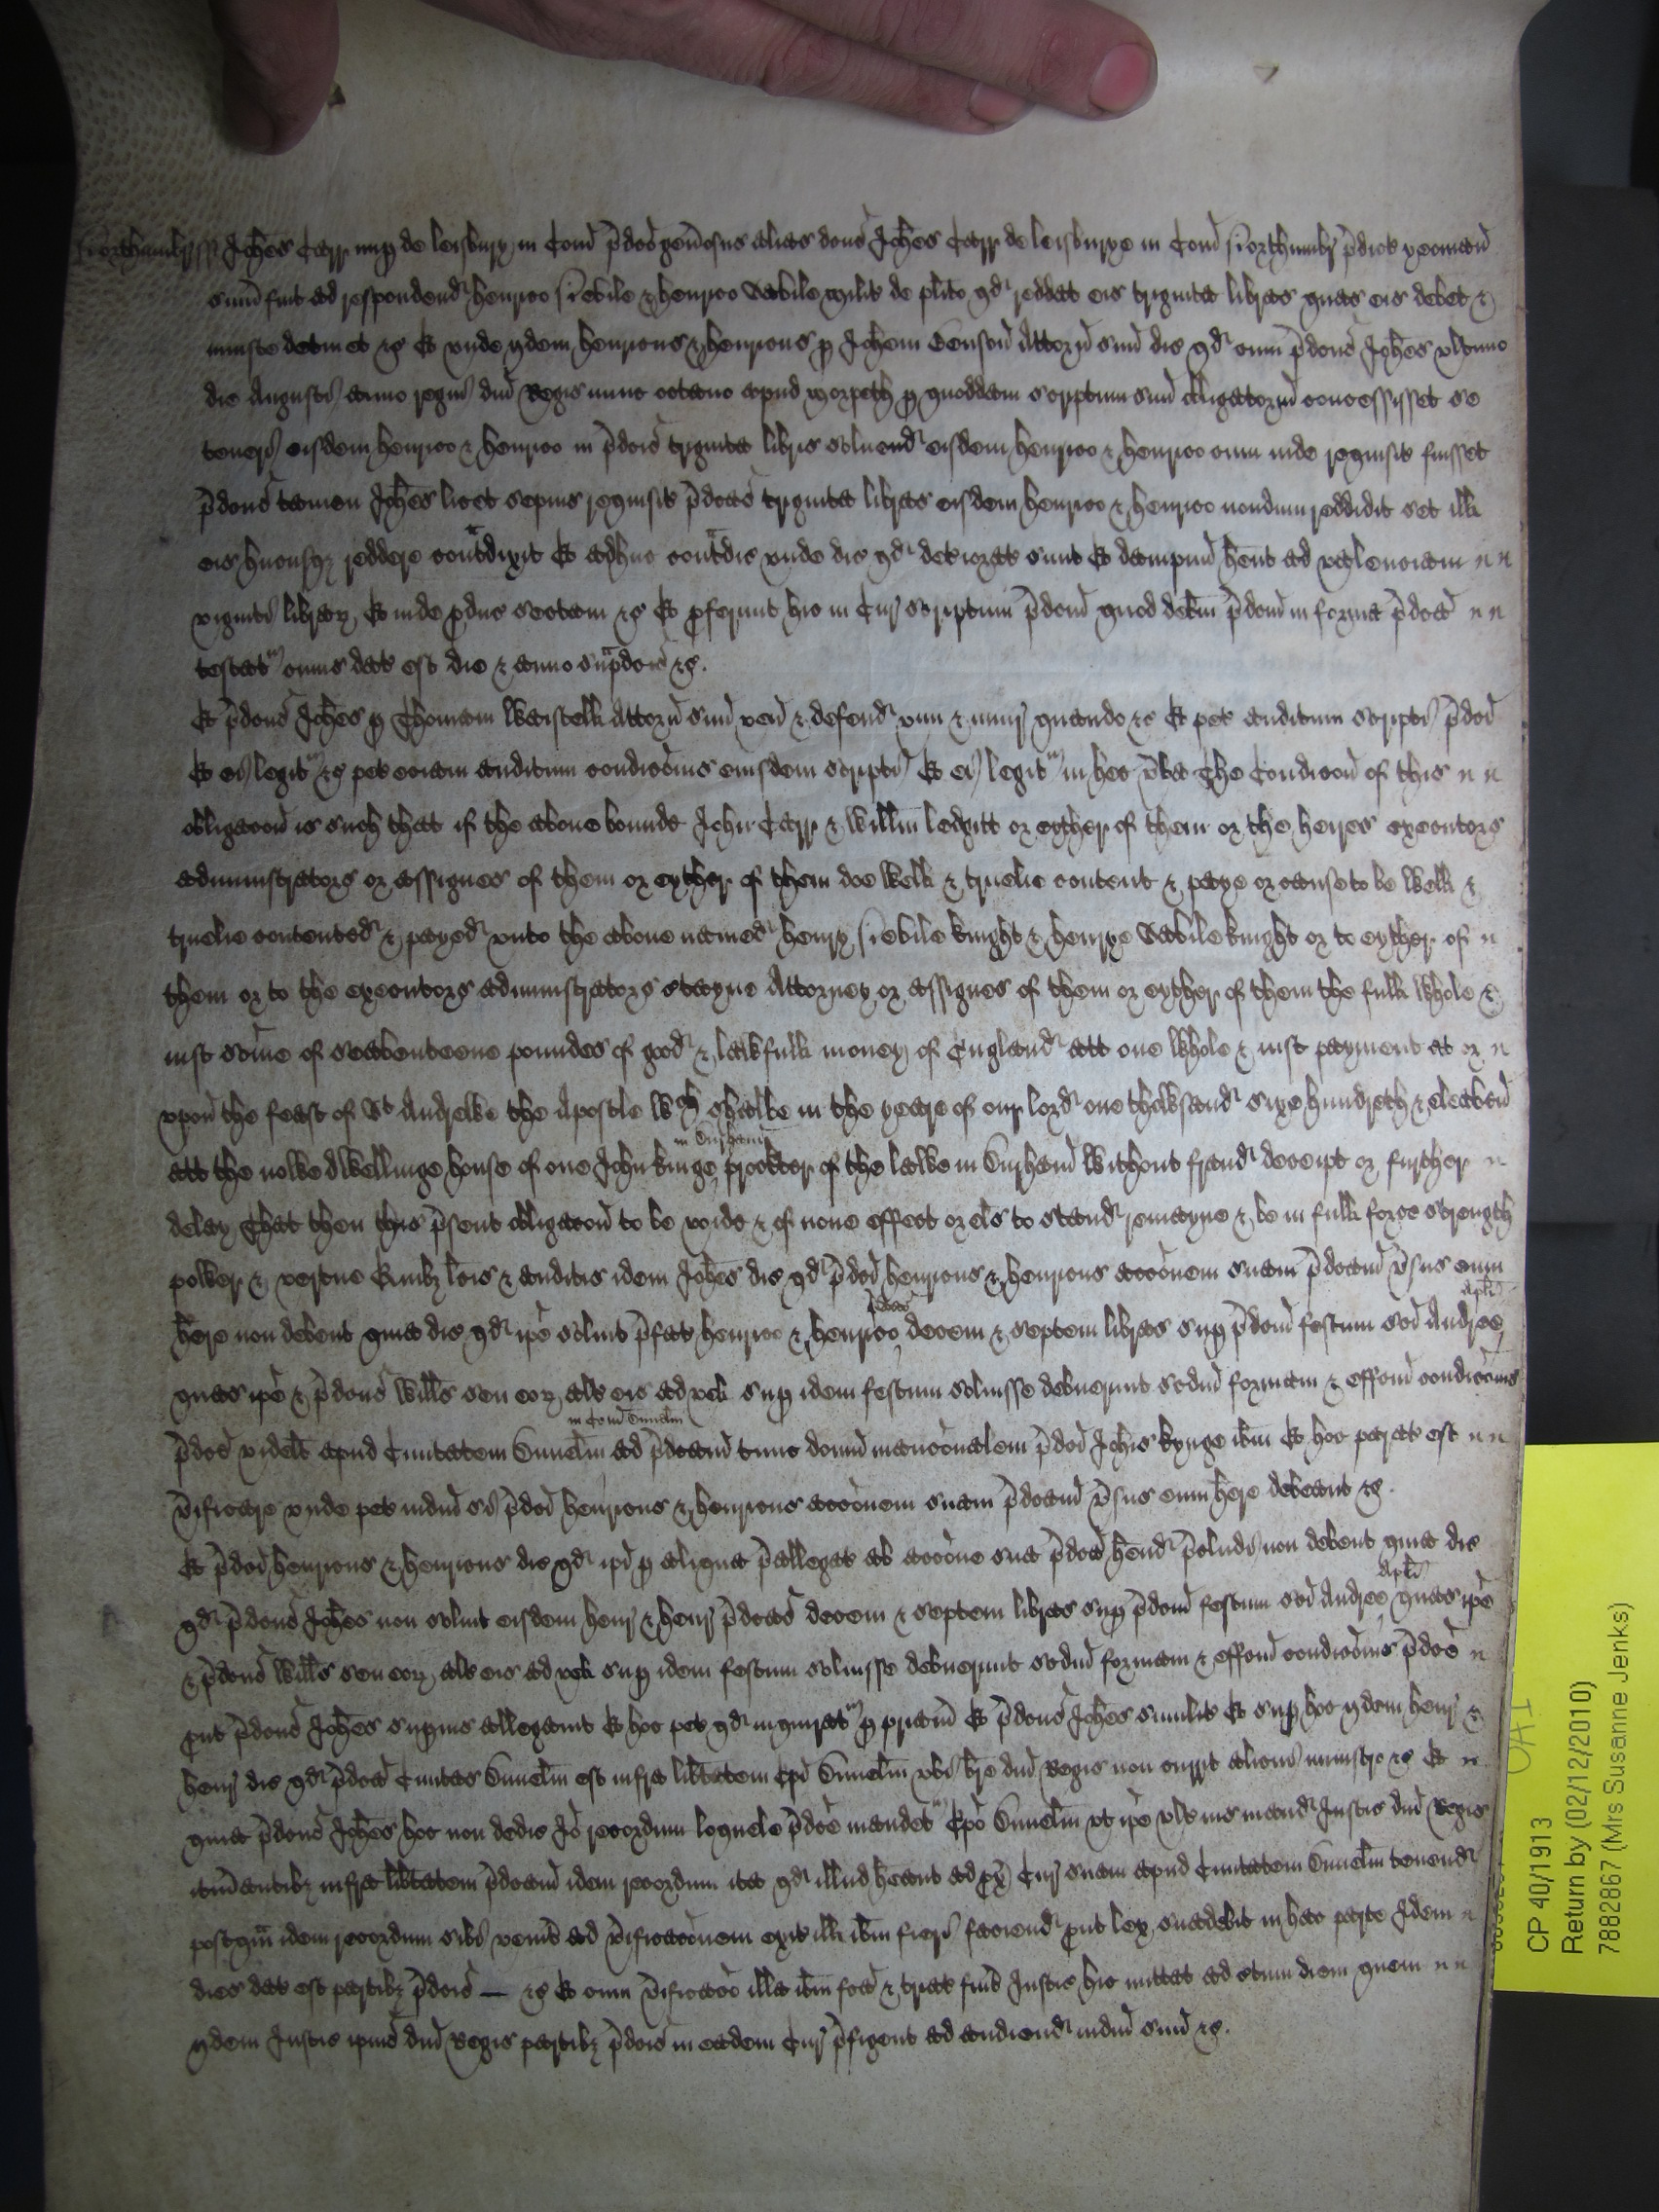 Northumbr ss Johes Carr nup de Lesbury in Com p̄dco gen̄osus alias dcus Johes Carr de Lesburye in Com Northumbr p̄dict yeoman
sum fuit ad respondend Henrico Nevile & Henrico Vavile milit de plito qd reddat eis triginta libras quas eis debet &
iniuste detinet &c Et unde ijdem Henricus & Henricus p Johem Denson Attorn suu dic qd cum p̄dcus Johes ultimo
die Augusti anno regni dni Regis nunc octavo apud Morpeth p quoddam scriptum suu obligatoriu concessisset se
teneri eisdem Henrico & Henrico in p̄dcis triginta libris solvend eisdem Henrico & Henrico cum inde requisit fuisset
p̄dcus tamen Johes licet sepius requisit p̄dcas triginta libras eisdem Henrico & Henrico nondum reddidit set ill
eis hucusq reddere cont̄dixit Et adhuc cont̄dic unde dic qd deteriorat sunt Et dampnu hent ad valenciam
viginti librar Et inde p̄duc sectam &c Et p̄ferunt hic in Cur scriptum p̄dcm quod debm p̄dcm in forma p̄dca
testat cuius dat est die & anno sup̄dcis &c.
Et p̄dcus Johes p Thomam Warcell Attorn suu ven & defend vim & iniur quando &c Et pet auditum scripti p̄dci
Et ei legit &c pet eciam auditum condicois eiusdem scripti Et ei legit in hec v̄ba The Condicon of this
obligacon is such that if the above bounde John Carr & Willm Ledgitt or eyther of them or the heires executors
administrators or assignes of them or eyther of them doe well & truelie content & paye or cause to be well &
truelie contented & payed unto the above named Henry Nevile knight & Henrye Vavile knight or to eyther of
them or to the executors administrators Attorney or assignes of them or eyther of them the full whole &
iust some of seaventeene poundes of good & lawfull money of England att one whole & iust payment at or
upon the feast of St Andrewe the Apostle wch shalbe in the yeare of our lord one thowsand sixe hundreth & eleaven
att the nowe dwellinge house of one John kinge in Durham procter of the lawe in Durham without fraud deceipt or further
delay That then this p̄sent obligacon to be voide & of none effect or els to stand remayne & be in full force strength
power & vertue Quibz lcis & auditis idem Johes dic qd p̄dci Henricus & Henricus accōnem suam p̄dcam v̄sus eum
here non debent quia dic qd ipe solvit p̄fat Henrico & Henrico p̄dcas decem & septem libras sup p̄dcm festum sci Andree Apli
quas ipe & p̄dcus Willus seu eor alt eis ad vel sup idem festum solvisse debuerunt scdm formam & effcm condicōis
p̄dce videlt apud Civitatem Dunelm in Com Dunelm ad p̄dcam tunc domu mancōnalem p̄dci Johis kynge ibm Et hoc parat est
v̄ificare unde pet iudm si p̄dci Henricus & Henricus accōnem suam p̄dcam v̄sus eum here debeant &c.
Et p̄dci Henricus & Henricus dic qd ipi p aliqua p̄allegat ab accōne sua p̄dca hend p̄cludi non debent quia dic
qd p̄dcus Johes non solvit eisdem Henr & Henr p̄dcas decem & septem libras sup p̄dcm festum sci Andree Apli quas ipe
& p̄dcus Willus seu eor alt eis ad vel sup idem festum solvisse debuerunt scdm formam & effcm condicōis p̄dce
put p̄dcus Johes supius allegavit Et hoc pet qd inquirat p pr̄iam Et p̄dcus Johes similit Et sup hoc ijdem Henr &
Henr dic qd p̄dca Civitas Dunelm est infra lib̄tatem Epi Dunelm ubi br̄e dni Regis non currit alicui ministr &c Et
quia p̄dcus Johes hoc non dedic Io recordum loquele p̄dce mandet Epo Dunelm ut ipe ult̄ius mand Justic dni Regis
itin̄antibz infra lib̄tatem p̄dcam idem recordum ita qd illud heant ad px Cur suam apud Civitatem Dunelm tenend
postqm̄ idem recordum sibi ven̄it ad v̄ificacōnem exit ill ibm fieri faciend put lex suadebit in hac parte Idem
dies dat est partibz p̄dcis — &c Et cum v̄ificaco illa ibm fca & triat fuit Justic hic mittat ad c̄tum diem quem
ijdem Justic ipius dni Regis partibz p̄dcis in eadem Cur p̄figent ad audiend iudm suu &c.
CP 40/1913
Return by (02/12/2010)
7882867 (Mrs Susanne Jenks)